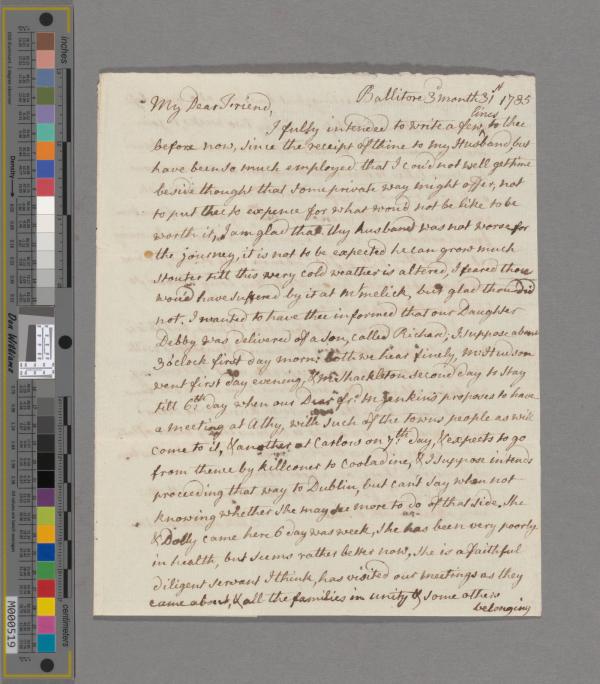 Ballitore 3d month 31st 1785
My Dear Friend,
lines
I fully intended to write a few to thee
before now, since the receipt of thine to my Husband, but
have been so much employed that I cou'd not well get time
beside thought that some private way might offer, not
to put thee to expence for what wou'd not be like to be
worth it, I am glad that thy husband was not worse for
the journey, it is not to be expected he can grow much
stouter till this very cold weather is altered, I feared thou
wou'd have suffered by it at Mtmelick, but glad thou did
not. I wanted to have thee informed that our Daughter
Debby was delivered of a son, called Richard, I suppose about
3 o'clock first day morng both we hear finely, Mr Hudson
went first day evening, & Mr Shackleton second day to stay
till 6th day when our Dear frd M: Jenkins proposes to have
a meeting at Athy, with such of the towns people as will
come to it, & another at Carlow on 7th day, & expects to go
from thence by Killconer to Cooladine, & I suppose intends
proceeding that way to Dublin, but cant say when not
knowing whether she may see more to do of that side. She
& Dolly came here 6 day was week, she has been very poorly
in health, but seems rather better now, she is a faithful
diligent servant I think, has visited our meetings as they
came about, & all the families in unity & some others
belonging
inches
Density
Don Williams
centimeters
M000519